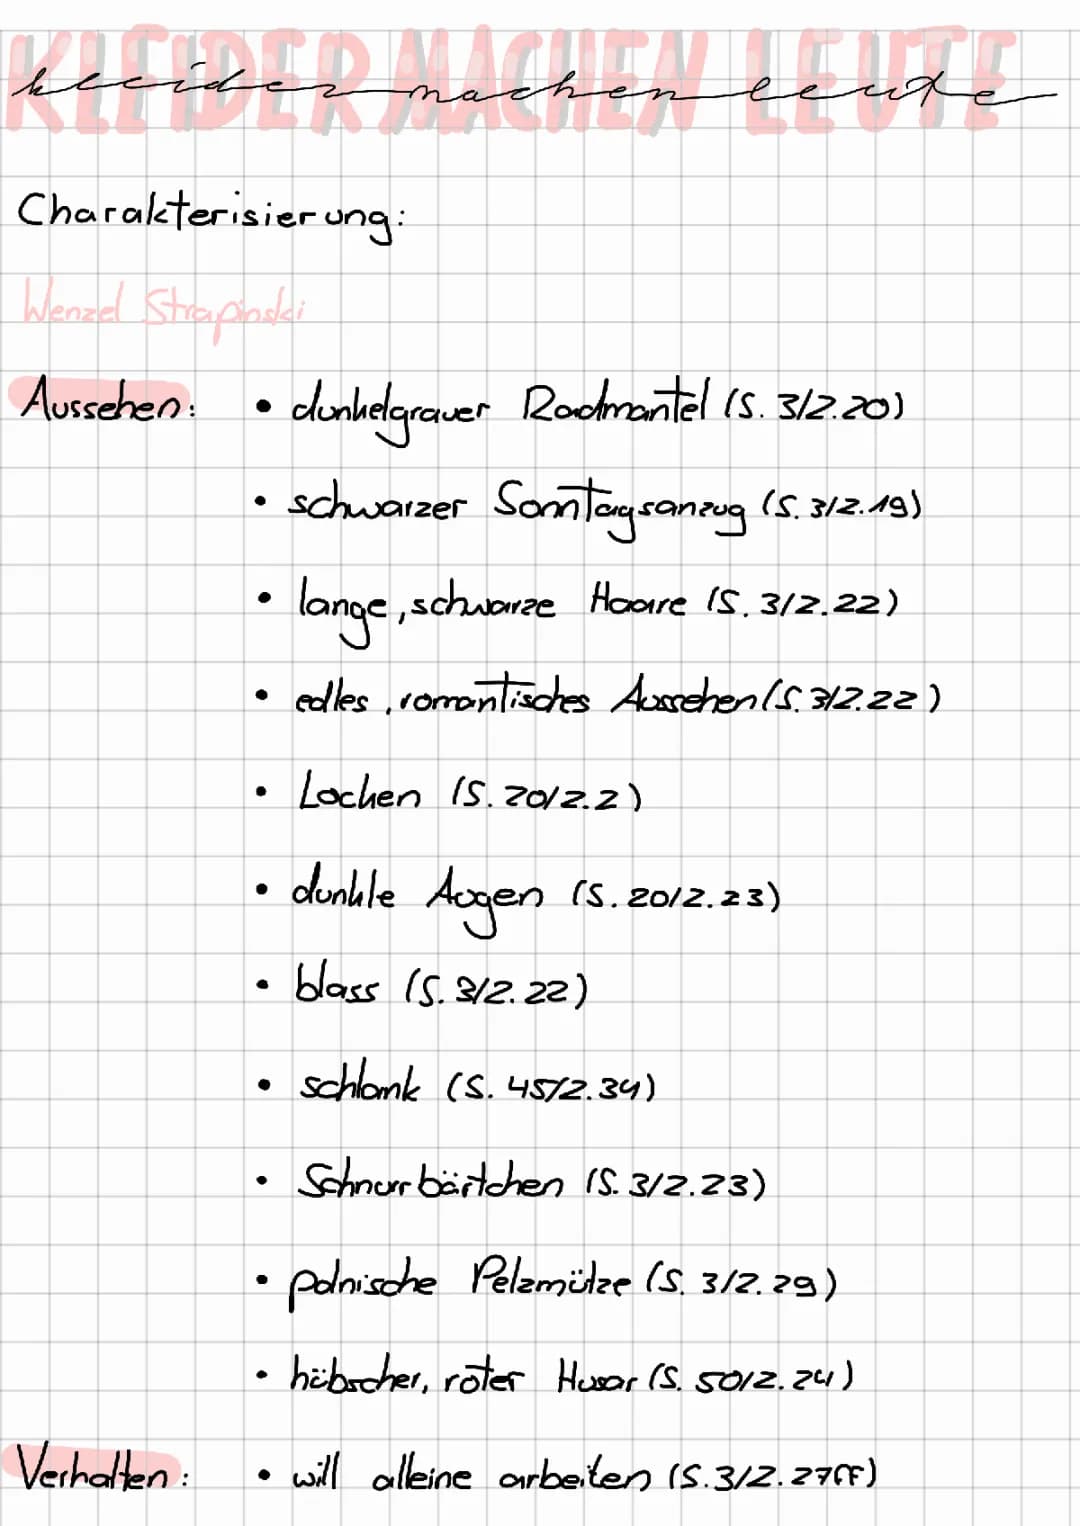 KLEIDER MACHEN LEUTE
kleider machen leute
Charakterisierung:
Wenzel Strapinski
Aussehen: • dunkelgrauer Radmantel (S. 3/Z.20)
• schwarzer Sonntagsanzug (S. 3/Z.19)
• lange, schwarze Haare (S. 3/Z.22)
• edles, romantisches Aussehen (S. 3/Z.22)
• Locken (S. 20/Z.2)
• dunkle Augen (S. 20/Z.23)
• blass (S. 3/Z.22)
• schlank (S. 45/Z.34)
• Schnurrbärtchen (S. 3/Z.23)
• polnische Pelzmütze (S. 3/Z.29)
• hübscher, roter Husar (S. 50/Z.24)
Verhalten: • will alleine arbeiten (S.3/Z.27ff)